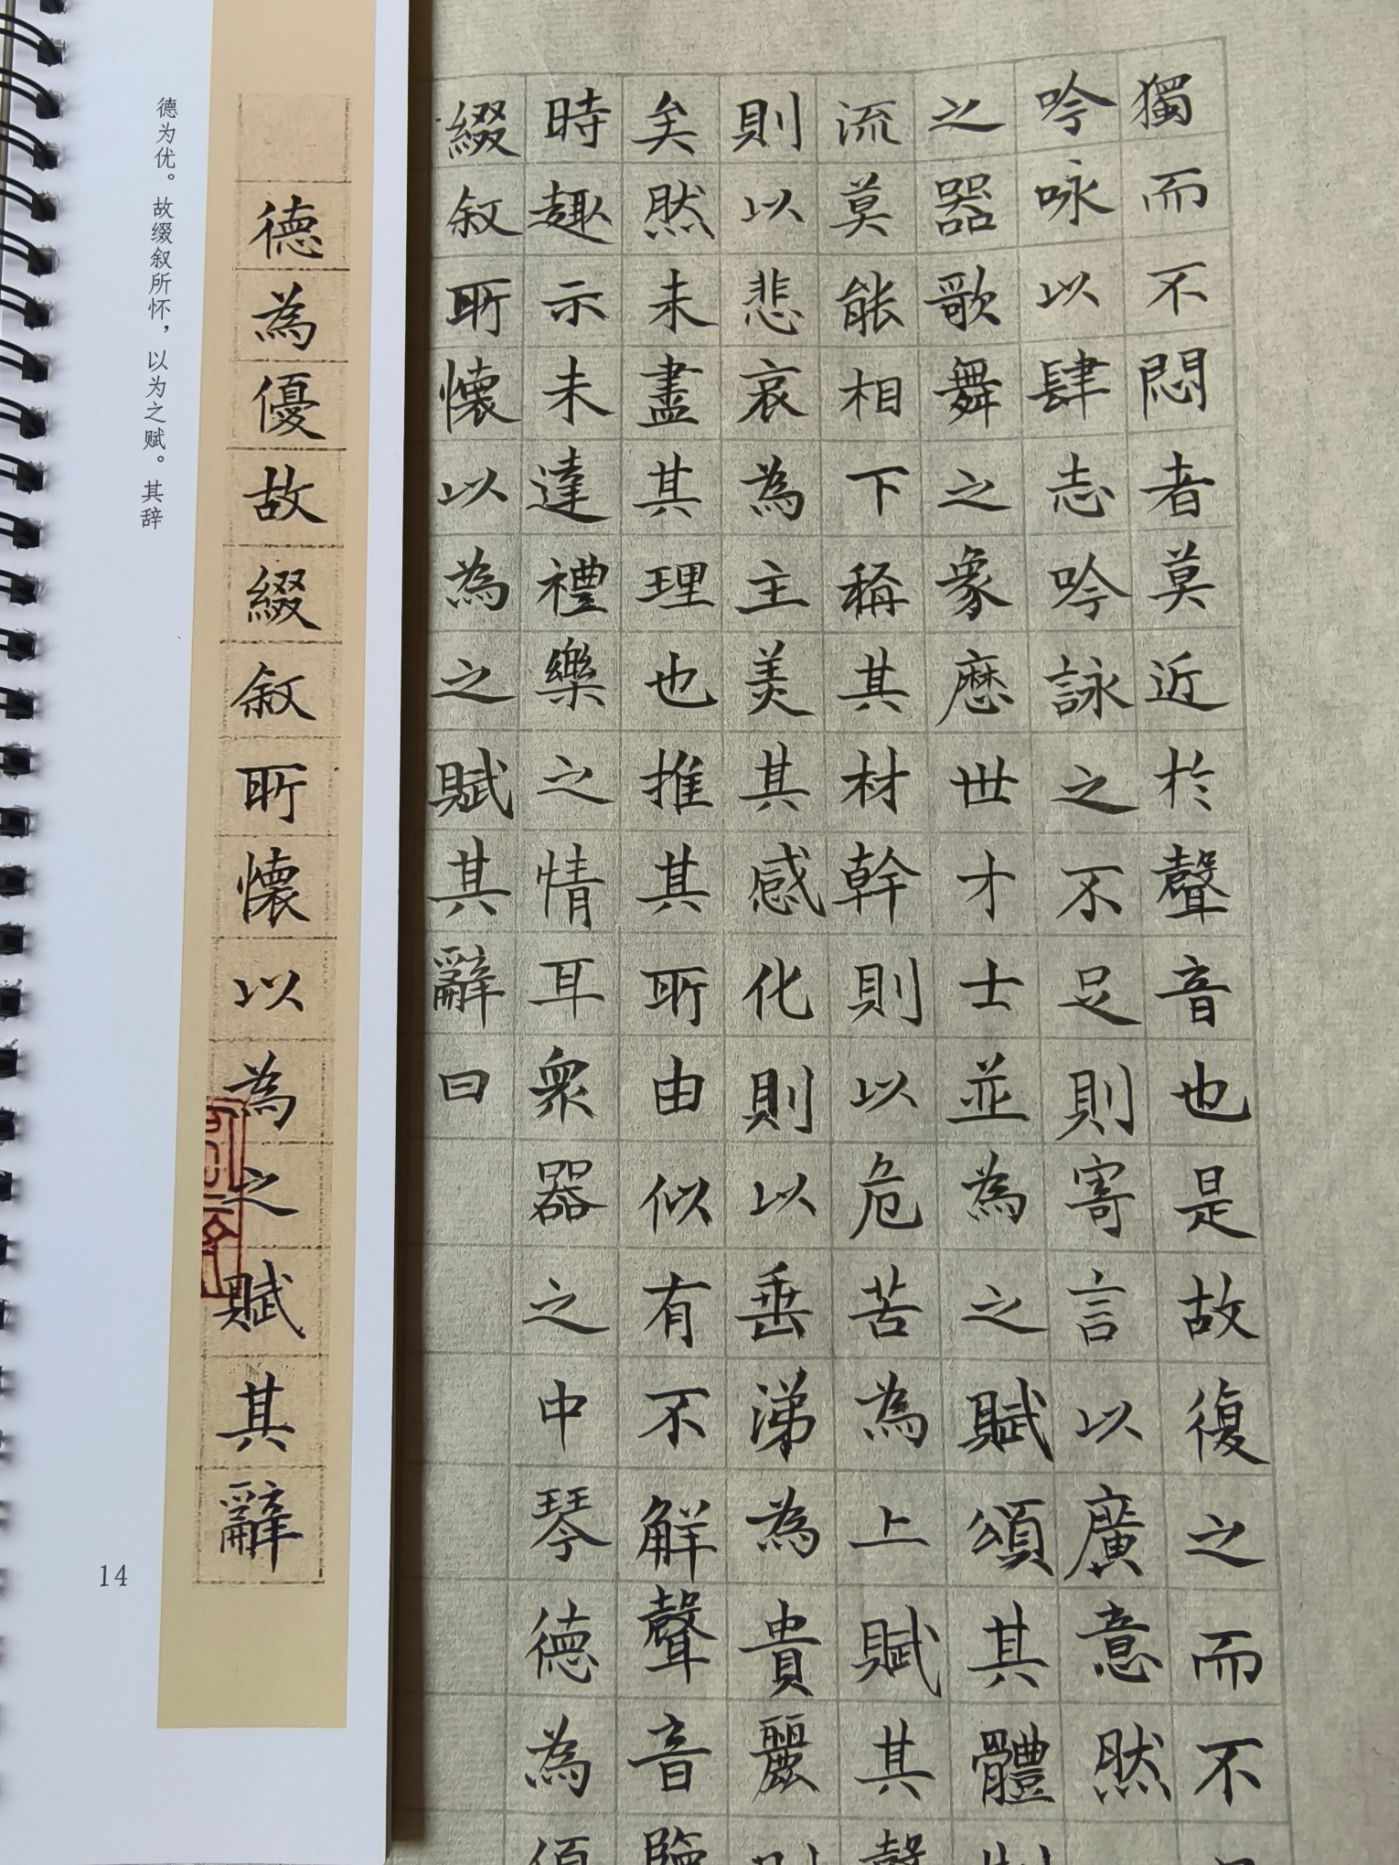 獨而不悶者莫近於聲音也是故復之而不
吟咏以肆志吟詠之不足則寄言以廣意然
之器歌舞之象歷世才士並為之賦頌其體
流莫能相下稱其材幹則以危苦為上賦其
則以悲哀為主美其感化則以垂涕為貴麗
矣然未盡其理也推其所由似有不解聲音
時趣示未達禮樂之情耳眾器之中琴德為
綴叙所懷以為之賦其辭曰
德為優故綴叙所懷以為之賦其辭
德为优。故缀叙所怀，以为之赋。其辞
14